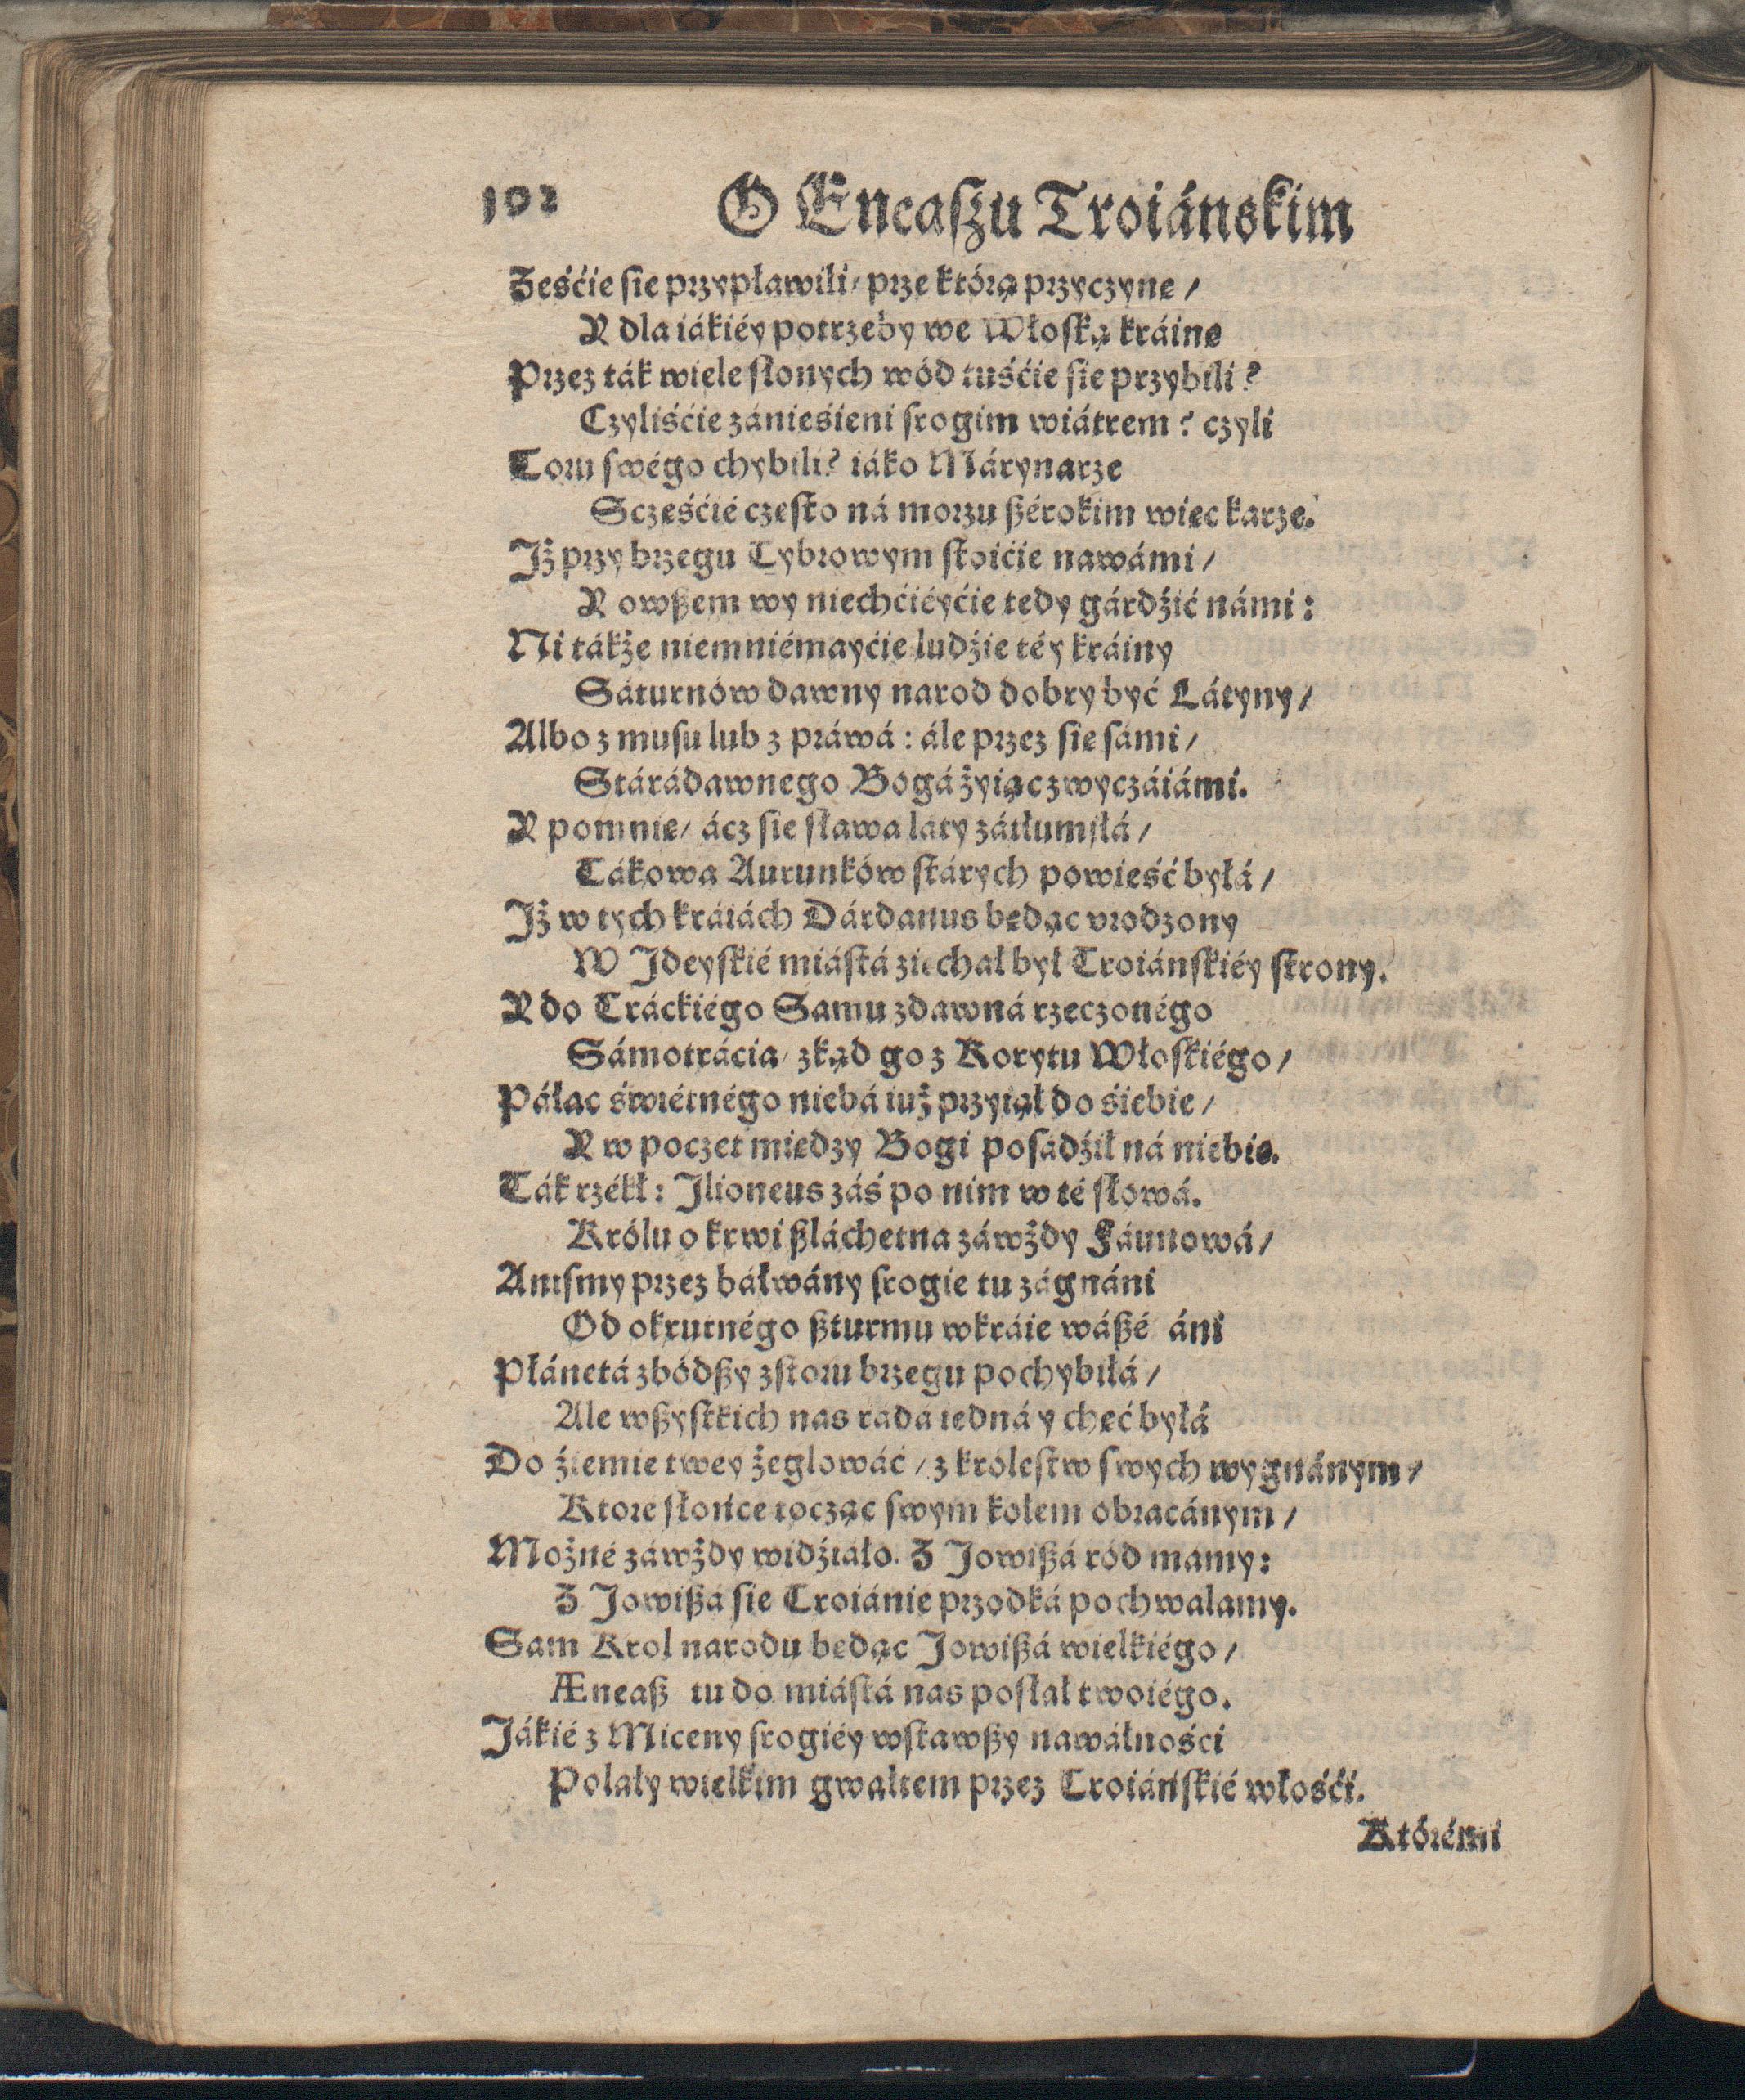 102 O Eneaſzu Troiánskim
Żeśćie ſie przypławili/ prze którą przyczynę/
Y dla iákiéy potrzeby we Włoſką kráinę
Przez ták wiele ſłonych wód tuśćie ſie przybili?
Czyliśćie zánieśieni ſrogim wiátrem? czyli
Toru ſwégo chybili? iáko Márynarze
Sczęśćié częſto ná morzu ßérokim więc karze.
Iż przy brzegu Tybrowym ſtoićie nawámi/
Y owßem wy niechćiéyćie tedy gárdźić námi:
Ni tákże niemniémayćie ludźie téy kráiny
Sáturnów dawny narod dobry być Látyny/
Albo z muſu lub z práwá: ále przez ſie ſámi/
Stárádawnego Bogá żyiąc zwyczáiámi.
Y pomnię/ ácz ſie ſława láty zátłumiłá/
Tákowa Aurunków ſtárych powieść byłá/
Iż w tych kráiách Dárdanus będąc vrodzony
W Jdeyſkié miáſtá ziechał był Troiánſkiéy ſtrony.
Y do Tráckiégo Samu zdawná rzeczonégo
Sámotrácia/ zkąd go z Korytu Włoſkiégo/
Páłac świétnégo niebá iuż przyiął do śiebie/
Y w poczet miedzy Bogi poſádźił ná niebie.
Ták rzékł: Jlioneus záś po nim w té ſłowá.
Królu o krwi ßláchetna záwżdy Fáunowá/
Aniſmy przez báłwány ſrogie tu zágnáni
Od okrutnégo ßturmu w kráie wáßé áni
Płánetá zbódßy z ſtoru brzegu pochybiłá/
Ale wßyſtkich nas rádá iedná y chęć byłá
Do źiemie twey żeglowáć/ z króleſtw ſwych wygnánym/
Ktore ſłońce tocząc ſwym kołem obracánym/
Możné záwżdy widźiáło. Z Jowißá ród mamy:
Z Jowißá ſie Troiánie przodká pochwalamy.
Sam Krol narodu będąc Jowißá wielkiégo/
Æneaß tu do miáſtá nas poſłał twoiégo.
Jákié z Miceny ſrogiéy wſtawßy nawáłności
Polały wielkim gwałtem przez Troiánſkié włośći.
Którémi